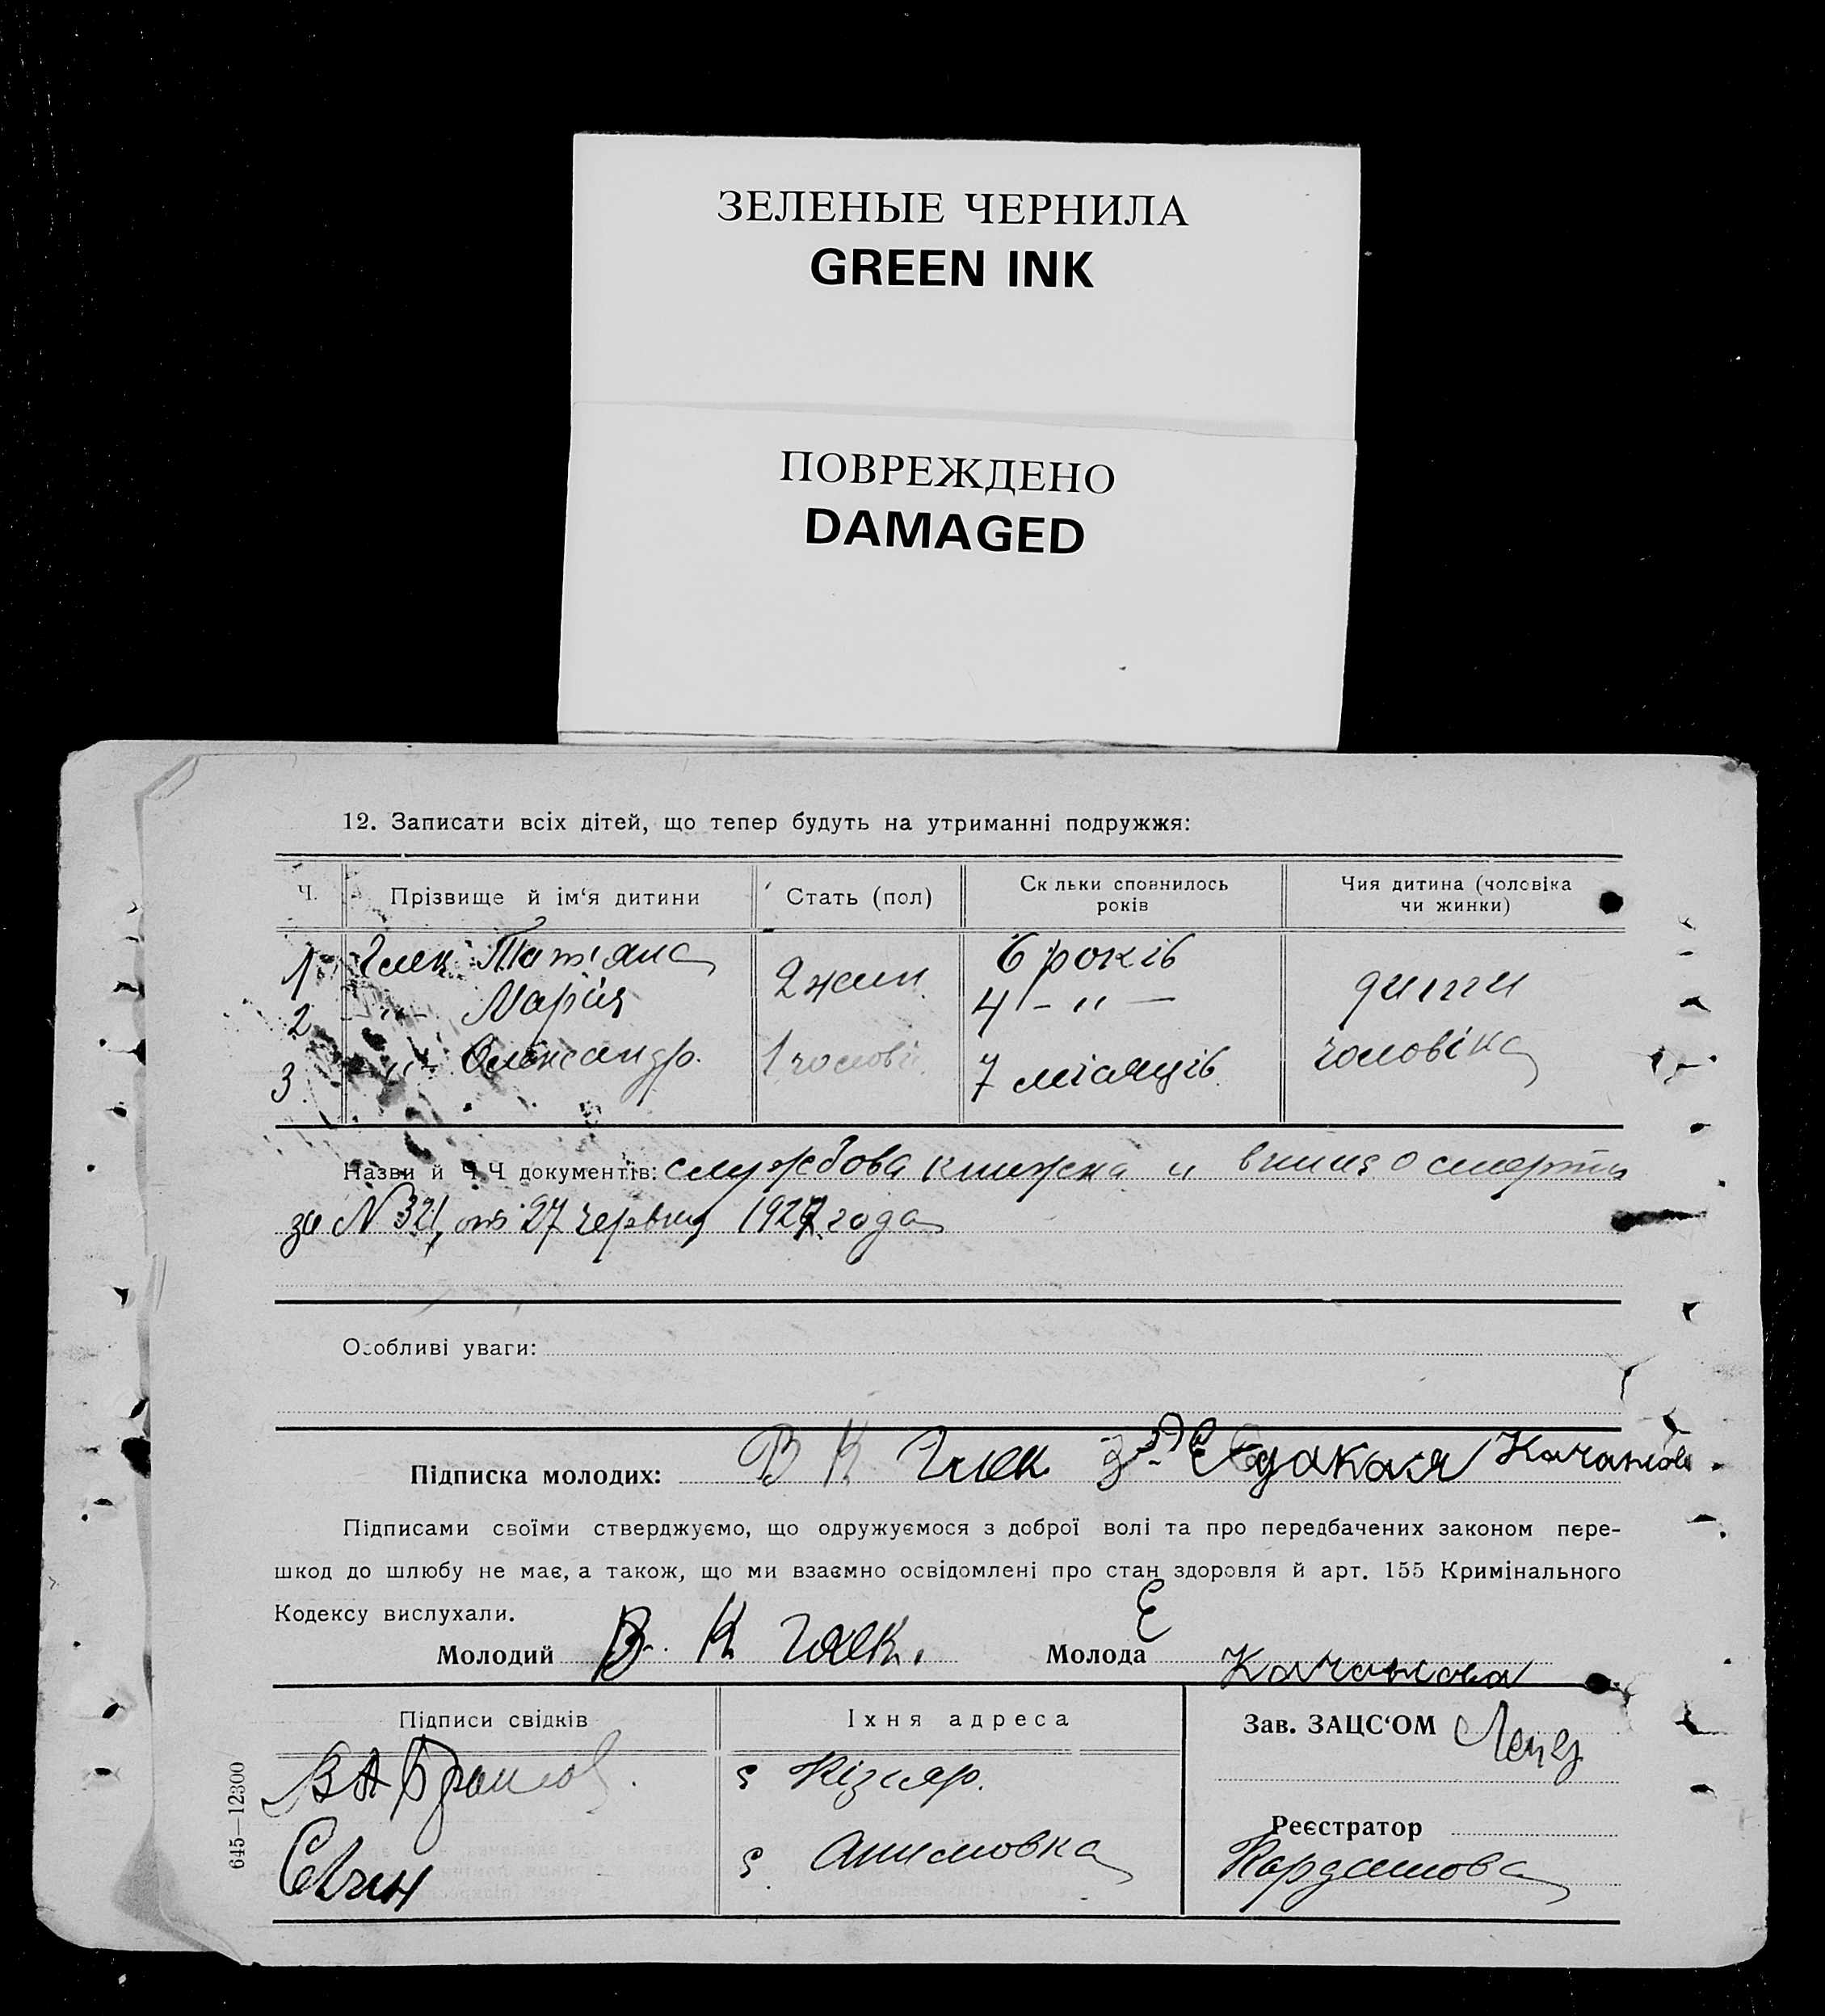 ЗЕЛЕНЫЕ ЧЕРНИЛА
GREEN INK
ПОВРЕЖДЕНО
DAMAGED
12. Записати всіх дітей, що тепер будуть на утриманні подружжя:
Ч. Прізвище й ім‘я дитини Стать (пол) Ск льки сповнилось років Чия дитина (чоловіка чи жинки)
1 Глек Тат'яна 2 жин. 6 років дити
2 -"- Марія 4 -"-
3 -"- Олександр. 1 чолові. 7 місяців. чоловіка
Назви й Ч Ч документів: службова книжка и о смерти
за № 321, от 27 червня 1927 года
Особливі уваги:
Підписка молодих: В К Глек
Підписами своїми стверджуємо, що одружуємося з доброї волі та про передбачених законом пере-
шкод до шлюбу не має, а також, що ми взаємно освідомлені про стан здоровля й арт. 155 Кримінального
Кодексу вислухали.
Молодий В. К Глек. Молода Е Качанова
Підписи свідків Їхня адреса Зав. ЗАЦС‘ОМ
с Кізляр.
Реєстратор
с
Кардашова
645—12300